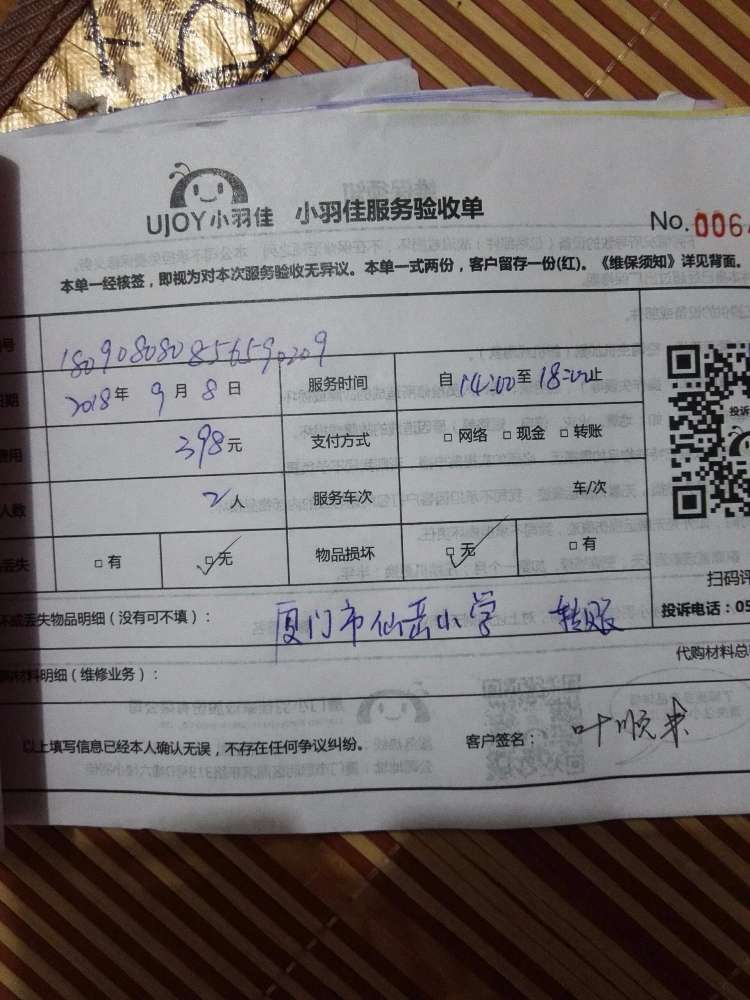 UJOY小羽佳 小羽佳服务验收单
No.0064
本单一经核签，即视为对本次服务验收无异议。本单一式两份，客户留存一份(红)。《维保须知》详见背面。
号 180908080856590209
期 2018年 9月 8日 服务时间 自 14:00 至 18:00 止
费用 398元 支付方式 □ 网络 □ 现金 □ 转账
人数 2人 服务车次 车/次
丢失 □ 有 □ 无 物品损坏 □ 无 □ 有
扫码评
坏或丢失物品明细（没有可不填）： 厦门市仙岳小学 转账
投诉电话：05
投诉
代购材料总
购材料明细（维修业务）：
以上填写信息已经本人确认无误，不存在任何争议纠纷。 客户签名：